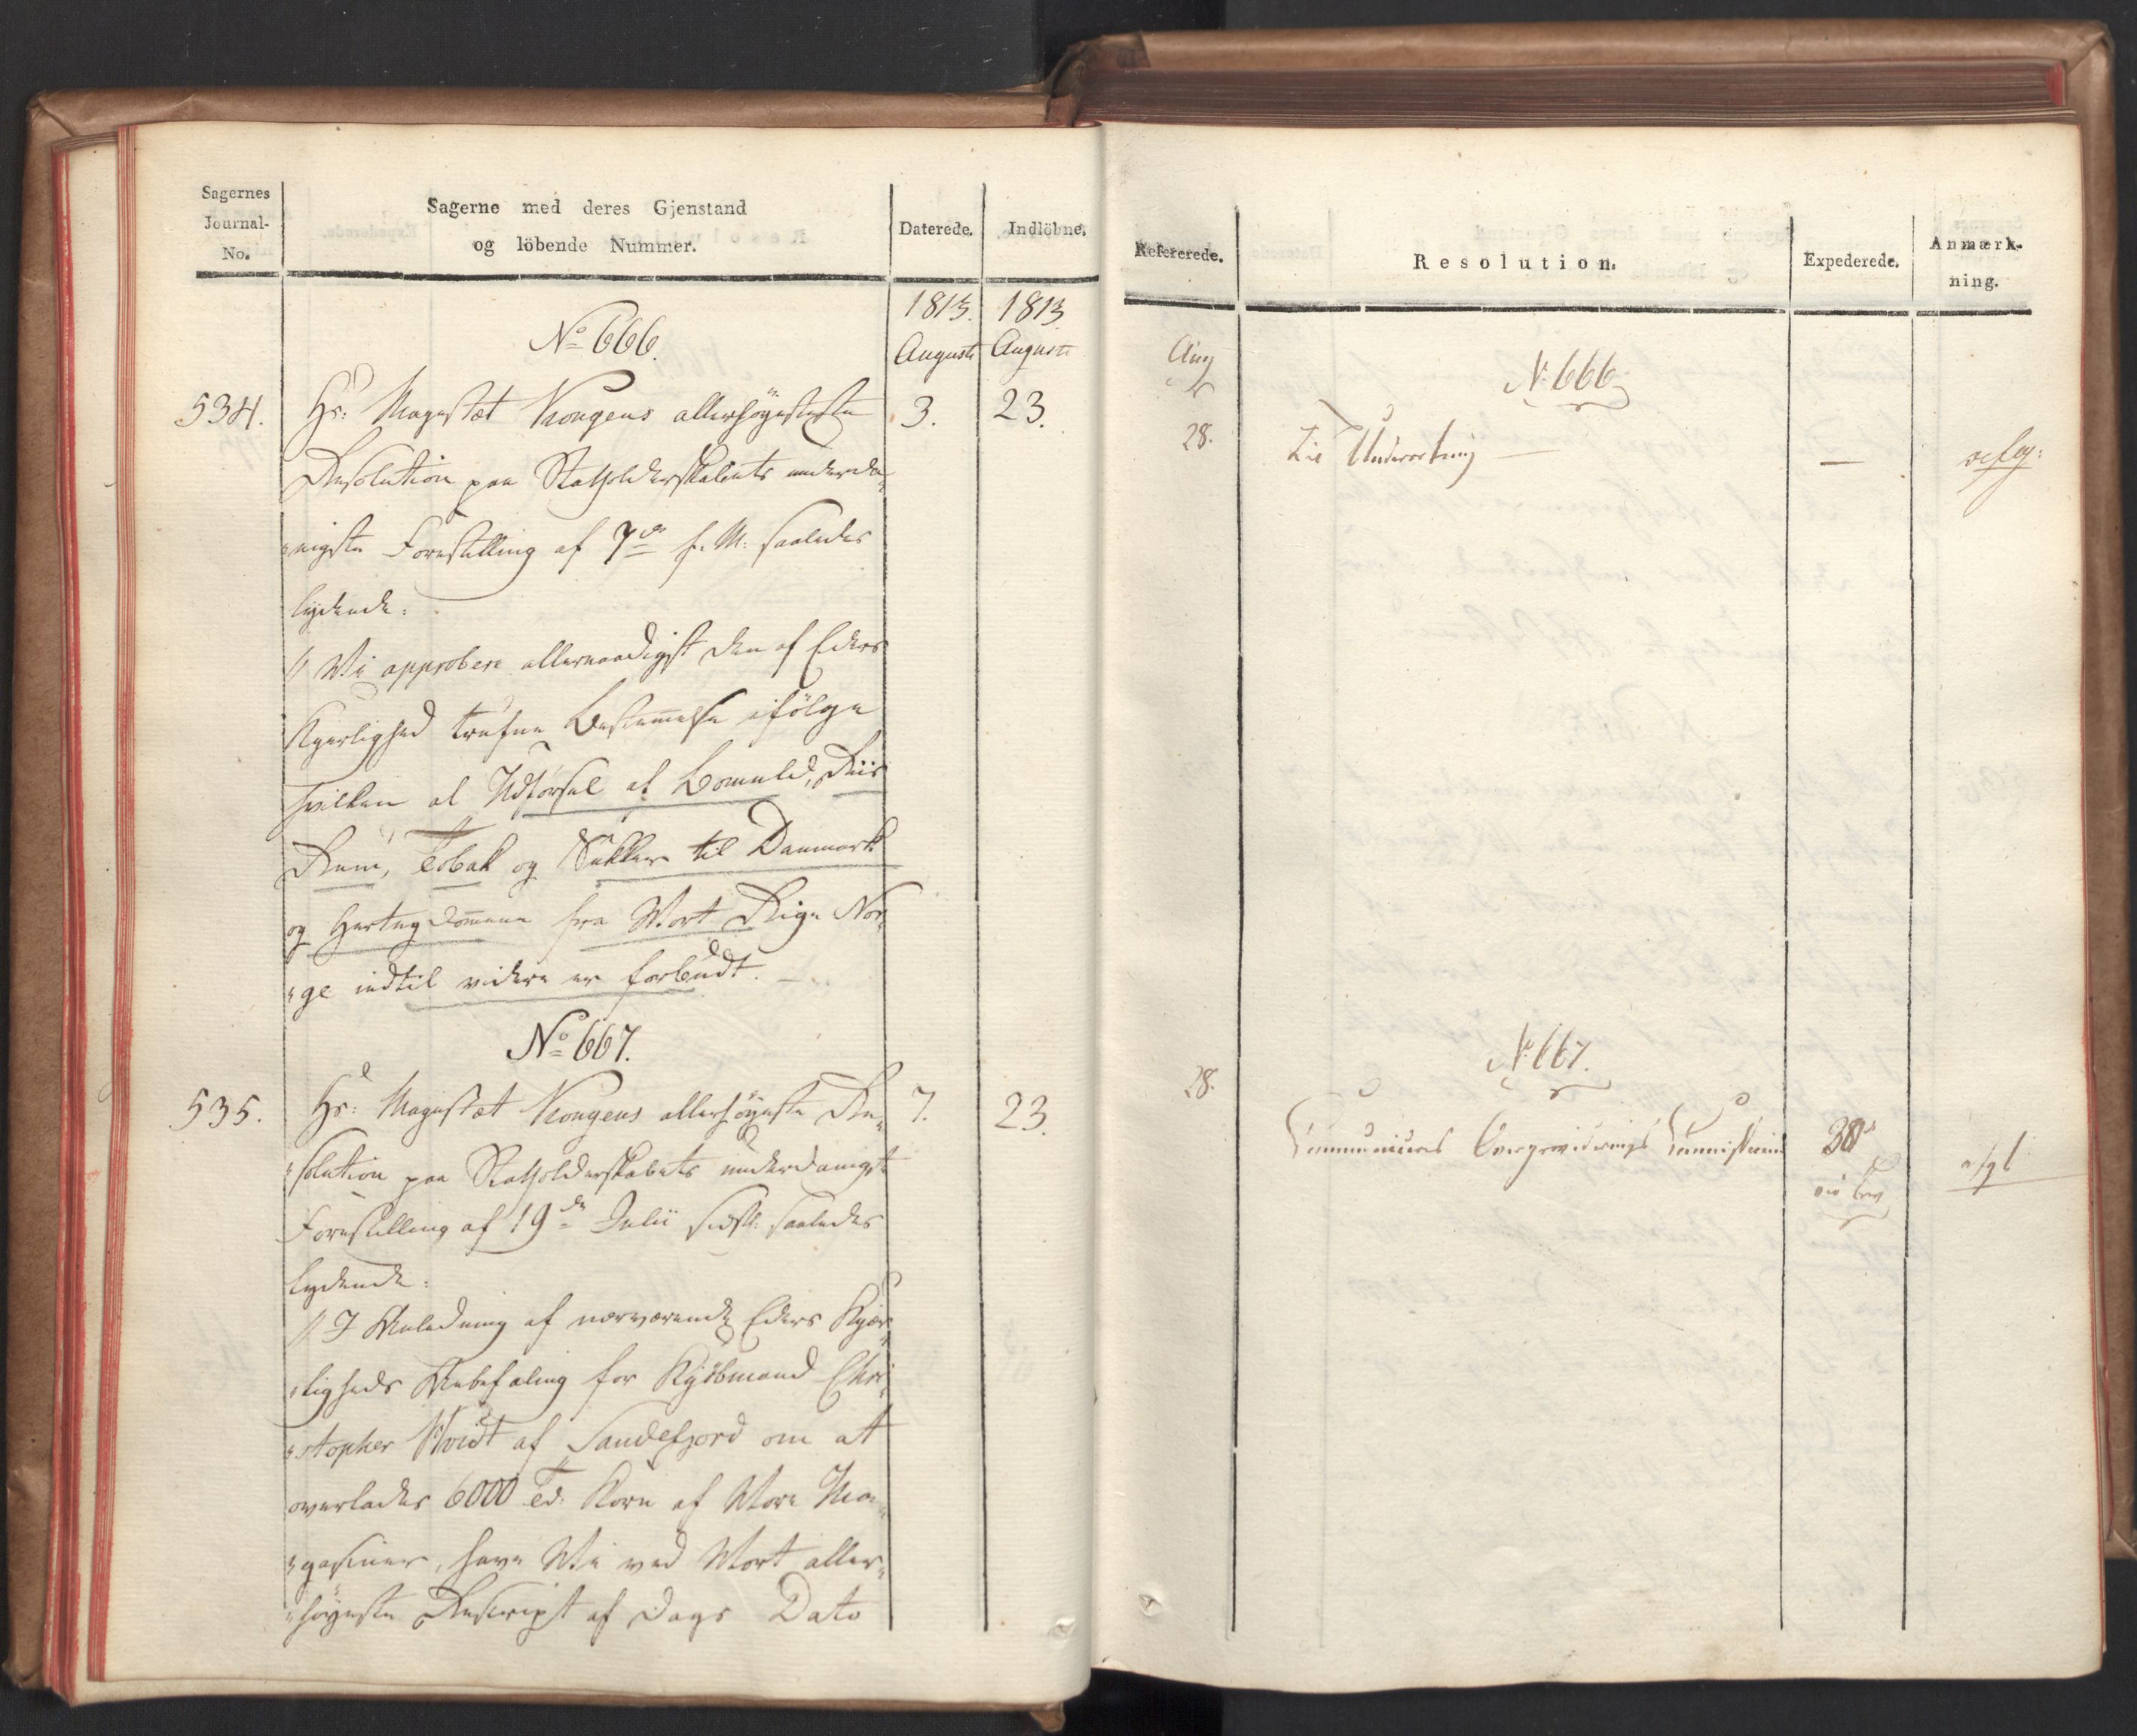 Sagernes
Journal-
No.
Sagerne med deres Gjenstand
og löbende Nummer.
Daterede.
Indlöbne.
1813.
1813
Augusti
Augusti
No 666.
534.
3.
23.
Hs: Magestæt Kongens allerhøyesteste
Resolution paa Statholderskabets underda-
"nigste Forestilling af 7de f. M: saaledes
lydende:
// Vi approbere allernaadigst den af Eders
Kjerlighed trufne Bestemelse ifölge
hvilken al Udførsel af Bomuld, Riis
Rum, Tobak og Sukker til Danmark
og Hertugdömene fra Vort Rige Nor-
"ge indtil videre er forbudt.
No 667.
535.
7.
23.
Hs: Magestæt Kongens allerhøyeste Re-
"solution paa Statholderskabets underdanigste
Forestilling af 19de Julii sidstl: saaledes
lydende:
// I Anledning af nærværende Eders Kjær-
"ligheds Anbefaling for Kjöbmand Chri-
"stopher Hvidt af Sandefjord om at
overlades 6000 Td: Korn af Vore Ma-
"gasiner, have Vi ved Vort aller-
"høyeste Rescript af Dags Dato
Refererede.
Resolution.
Expederede.
Anmærk-
ning.
Aug
N. 666
28.
Til Underretning —
—
N. 667.
28.
Communiceres Overprovideerings Commissionen
30